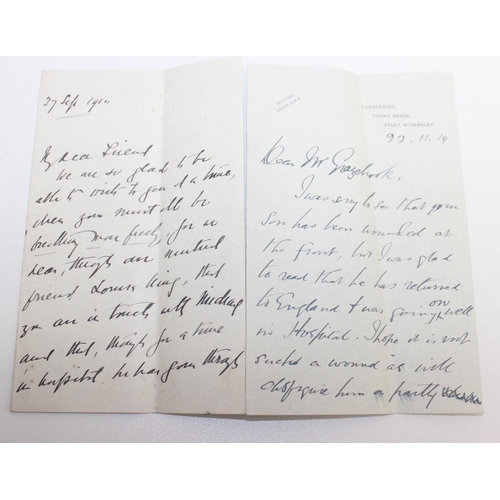 27 Sep 1914
My Dear Friend
We are so glad to be
able to write to you at a time,
when you must all be
breathing more freely, for we
hear, through our mutual
friend Louisa King, that
you are in touch with
and that, though for a time
in hospital he has gone through
22.11.14
Dear Mr Grazebrook,
I was sorry to see that your
Son has been wounded at
the front, but I was glad
to read that he has returned
to England & was going on well
in Hospital. I hope it is not
such a wound as will
disfigure him or partly